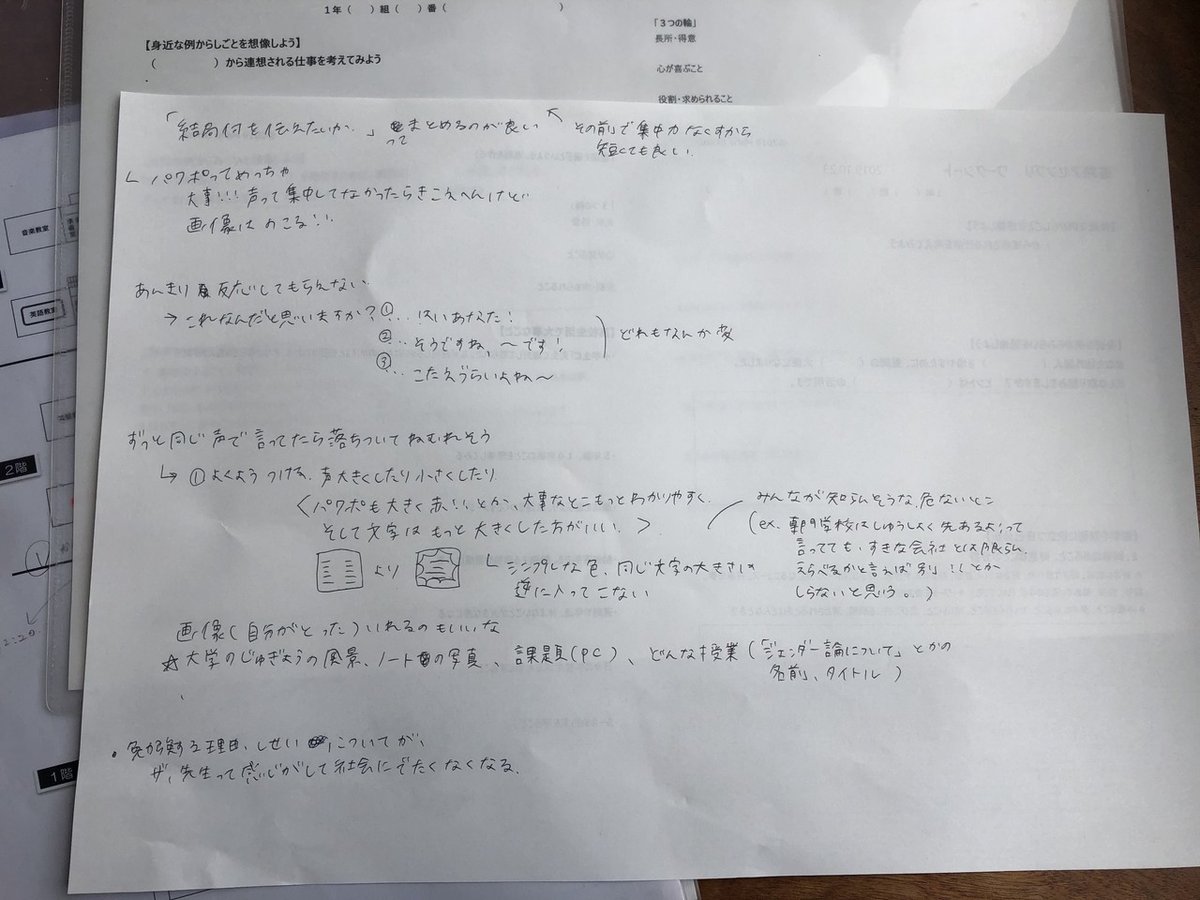 1年（　）組（　）番（　　　　　）
【身近な例からしごとを想像しよう】
（　　　　）から連想される仕事を考えてみよう
「３つの輪」
長所・得意
心が喜ぶこと
役割・求められること
「結局何を伝えたいか。」ってまとめるのが良い
その前で集中力なくすから
短くても良い。
パワポってめっちゃ
大事!!! 声って集中してなかったらきこえへんけど
画像はのこる!!
あんまり反応してもらえない
→ これなんだと思いますか? ①… はいあなた!
②… そうですね、〜です!
③… こたえづらいよね〜
どれもなんか変
ずっと同じ声で言ってたら落ちついてねむれそう
↳ ①よくようつける、声大きくしたり小さくしたり
＜パワポも大きく赤!! とか、大事なとこもっとわかりやすく。
そして文字はもっと大きくした方がいい。＞
より
シンプルな色、同じ文字の大きさは
逆に入ってこない
みんなが知らんそうな危ないとこ
(ex. 専門学校はしゅうしょく先あるよ!って
言ってても、すきな会社とは限らん
えらべるかと言えば別!! とか
しらないと思う。)
画像(自分がとった)いれるのもいいな
☆大学のじゅぎょうの風景、ノートの写真、課題(PC)、どんな授業(「ジェンダー論について」とかの
名前、タイトル)
・勉強する理由、しせい、についてが、
ザ、先生って感じがして社会にでたくなくなる。
音楽教室
英語教室
2階
1階